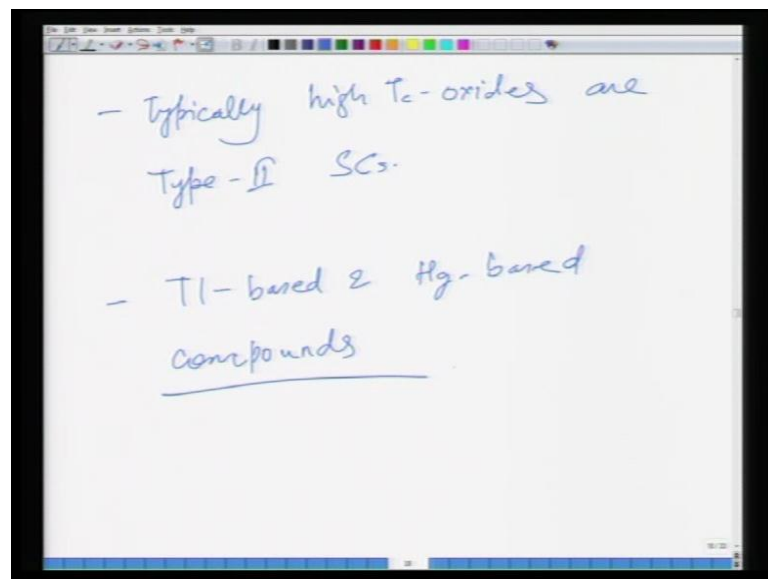 File Edit View Insert Actions Tools Help
- Typically high Tc-oxides are
Type-II SCs.
- Tl-based & Hg-based
compounds